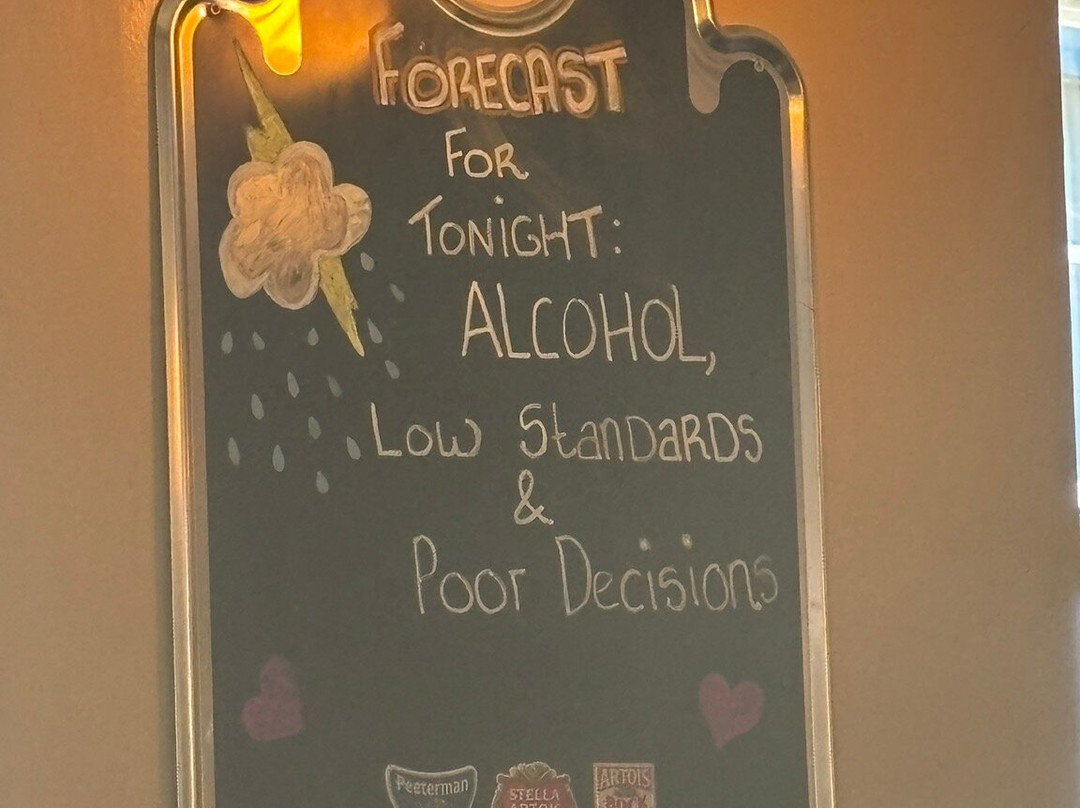 FORECAST
FOR
TONiGHT:
ALCOHOL,
Low StanDaRDS
&
Poor Decisions
Peeterman
STELLA
ARTOIS
ARTOIS
BOCK